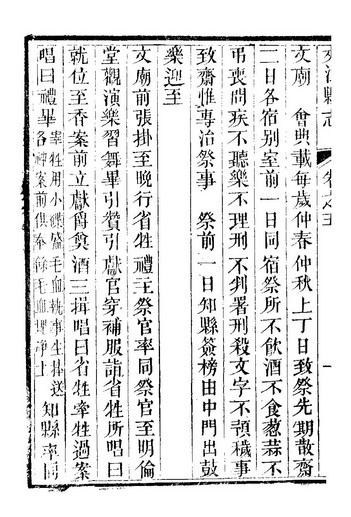 文廟　會典載每歲仲春仲秋上丁日致祭先期散齋
二日各宿别室前一日同宿祭所不飲酒不食葱蒜不
弔喪問疾不聽樂不理刑不判署刑殺文字不預穢事
致齋惟專治祭事　祭前一日知縣簽榜由中門出鼓
樂迎至
文廟前張掛至晚行省牲禮主祭官率同祭官至明倫
堂觀演樂習舞畢引贊引獻官穿補服詣省牲所唱曰
就位至香案前立獻爵奠酒三揖唱曰省牲牽牲過案
唱曰禮畢宰牲用小碟盛毛血執事生捧送各神案前供奉餘毛血埋净土知縣率同